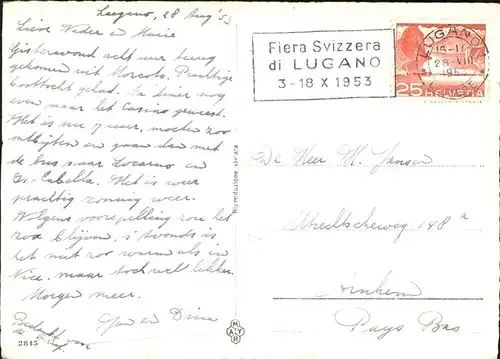 Lugano, 28 Aug '53
Lieve Vader en Marie
Gisteravond acht uur terug
gekomen uit Morcote. Prachtige
boottocht gehad. Na diner nog
even naar het Casino geweest.
Het is nu 7 uur, moeten zoo
ontbijten en gaan dan met
de bus naar Locarno en
Is. Bella. Het is weer
prachtig zonnig weer.
Volgens voorspelling zou het
zoo blijven. 's Avonds is
het niet zoo warm als in
Nice. maar toch wel lekker.
Morgen meer.
Bedankt voor
de brief.
en Dina
2845
Riproduzione vietata
MAYR
Fiera Svizzera
di LUGANO
3-18 X 1953
LUGANO
28.VIII
25 HELVETIA
De Heer M. Jansen
Utrechtscheweg 148a
Arnhem
Pays Bas